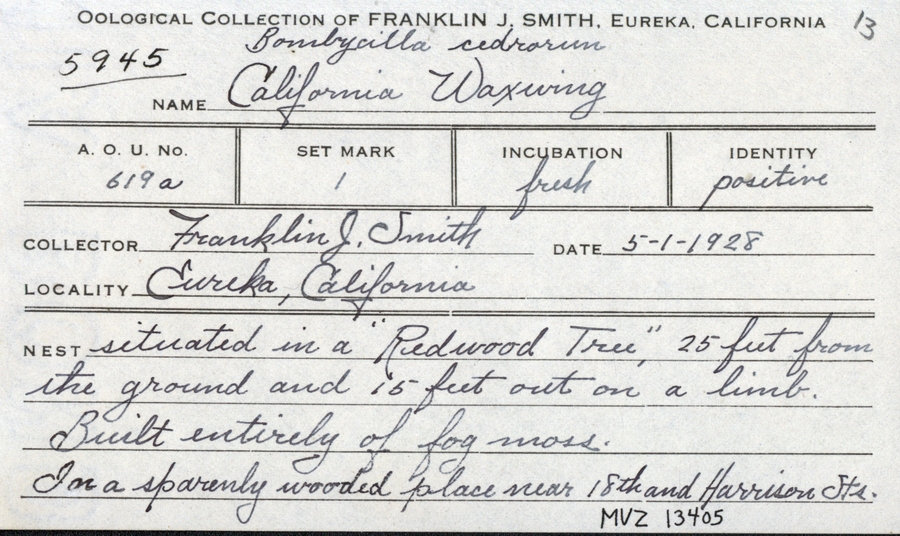 OOLOGICAL COLLECTION OF FRANKLIN J. SMITH, EUREKA, CALIFORNIA 13
Bombycilla cedrorum
5945
NAME California Waxwing
A. O. U. NO. SET MARK INCUBATION IDENTITY
619a 1 fresh positive
COLLECTOR Franklin J. Smith DATE 5-1-1928
LOCALITY Eureka, California
NEST situated in a "Redwood Tree", 25 feet from
the ground and 15 feet out on a limb.
Built entirely of fog moss.
In a sparenly wooded place near 18th and Harrison Sts.
MVZ 13405